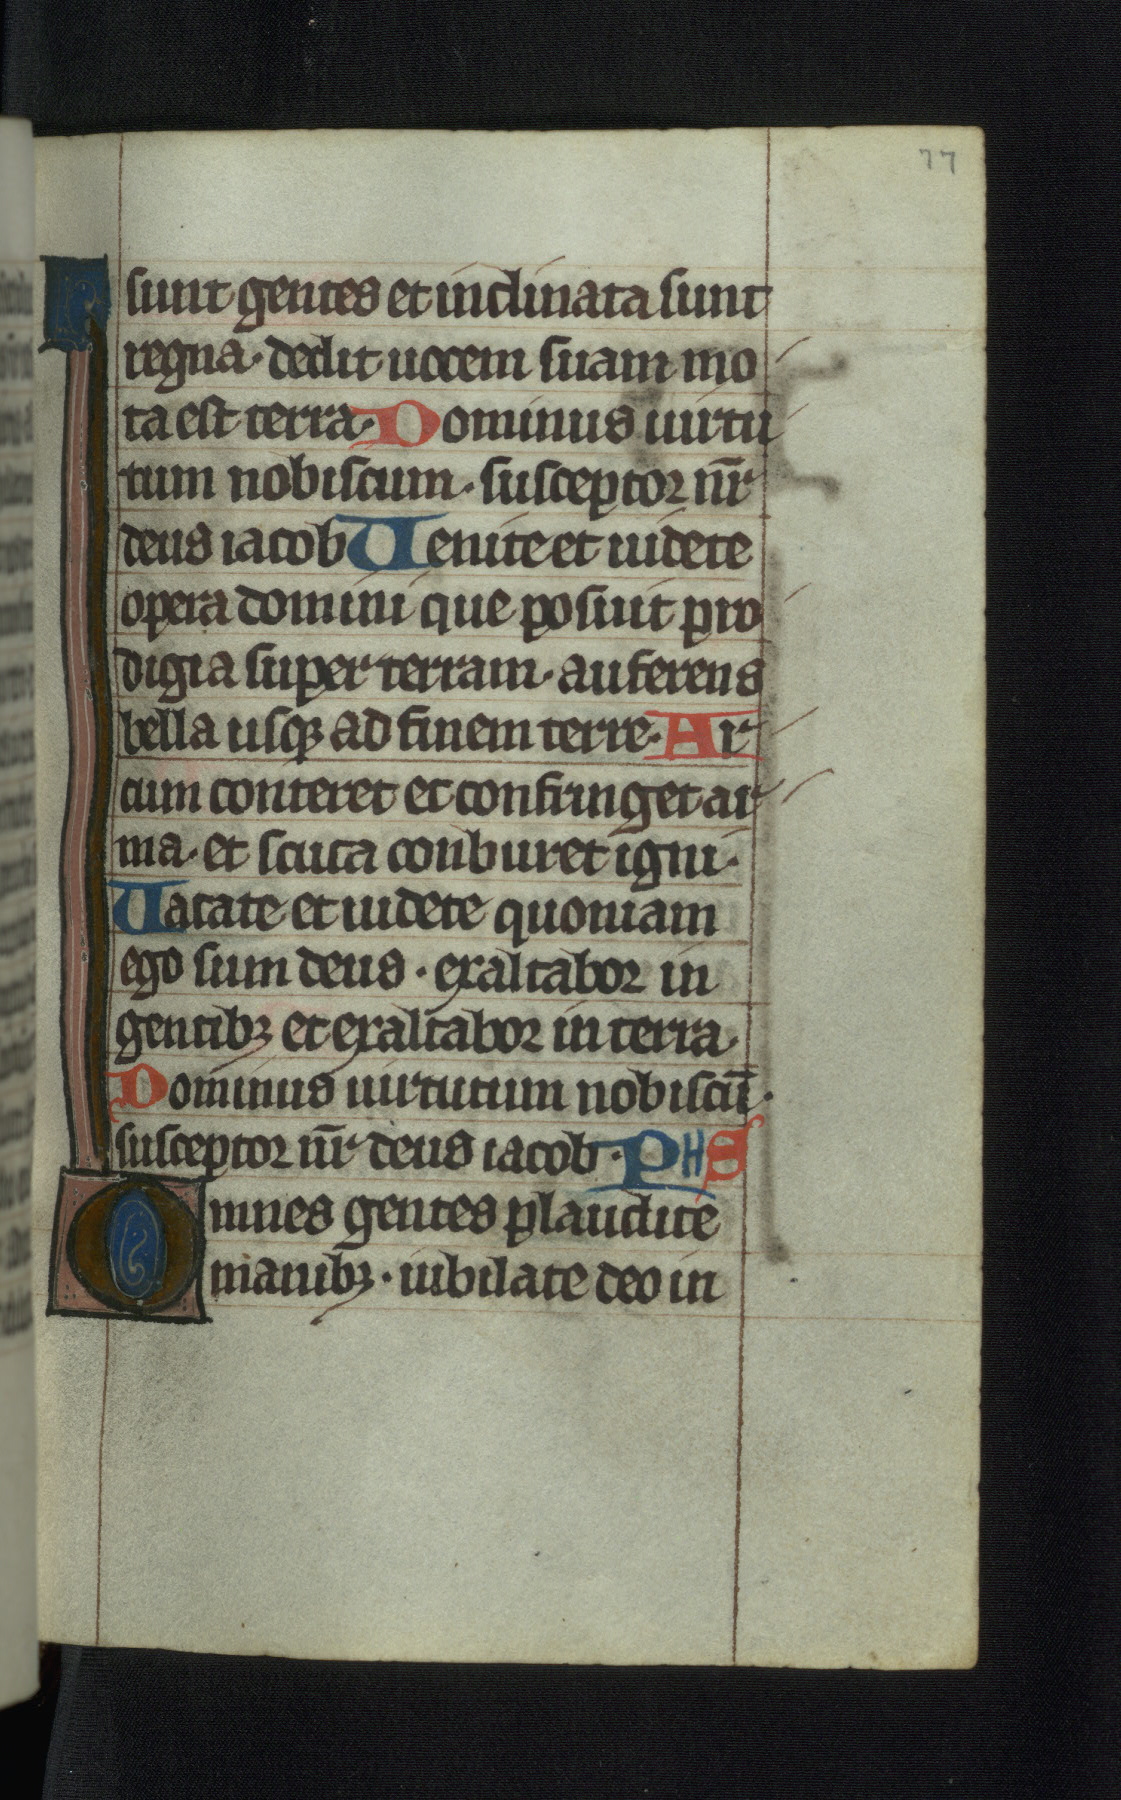 77
sunt gentes et inclinata sunt
regna· dedit uocem suam mo
ta est terra· Dominus uirtu
tum nobiscum· susceptor nr̄
deus iacob Uenite et uidete
opera domini que posuit pro
digia super terram· auferens
bella usqꝫ ad finem terre· Ar
cum conteret et confringet ar
ma· et scuta conburet igni·
Uacate et uidete quoniam
ego sum deus· exaltabor in
gentibꝫ et exaltabor in terra·
Dominus uirtutum nobiscū·
susceptor nr̄ deus iacob· PHS
Omnes gentes plaudite
manibꝫ· iubilate deo in